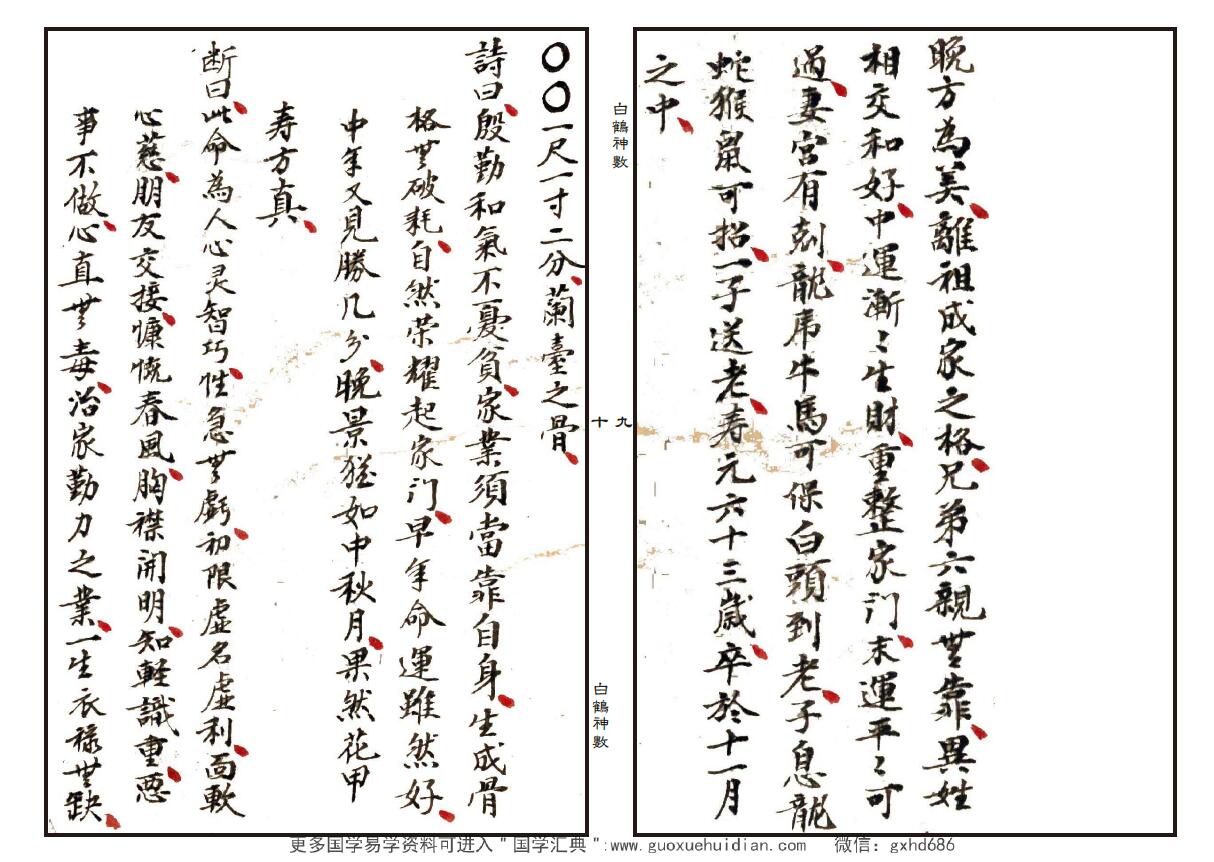 晚方為美離祖成家之格兄弟六親無靠異姓
相交和好中運漸々生財重整家门末運平々可
過妻宮有剋龍虎牛馬可保白頭到老子息龍
蛇猴鼠可招一子送老寿元六十三歲卒於十一月
之中
白鶴神數
十九
白鶴神數
〇〇一尺一寸二分蘭臺之骨
詩曰殷勤和氣不憂貧家業須當靠自身生成骨
格無破耗自然荣耀起家门早年命運雖然好
中年又見勝几分晚景猶如中秋月果然花甲
寿方真
断曰此命為人心灵智巧性急無虧初限虛名虛利面軟
心慈朋友交接慷慨春風胸襟開明知軽識重惡
事不做心直無毒治家勤力之業一生衣祿無缺
更多国学易学资料可进入"国学汇典":www.guoxuehuidian.com 微信：gxhd686